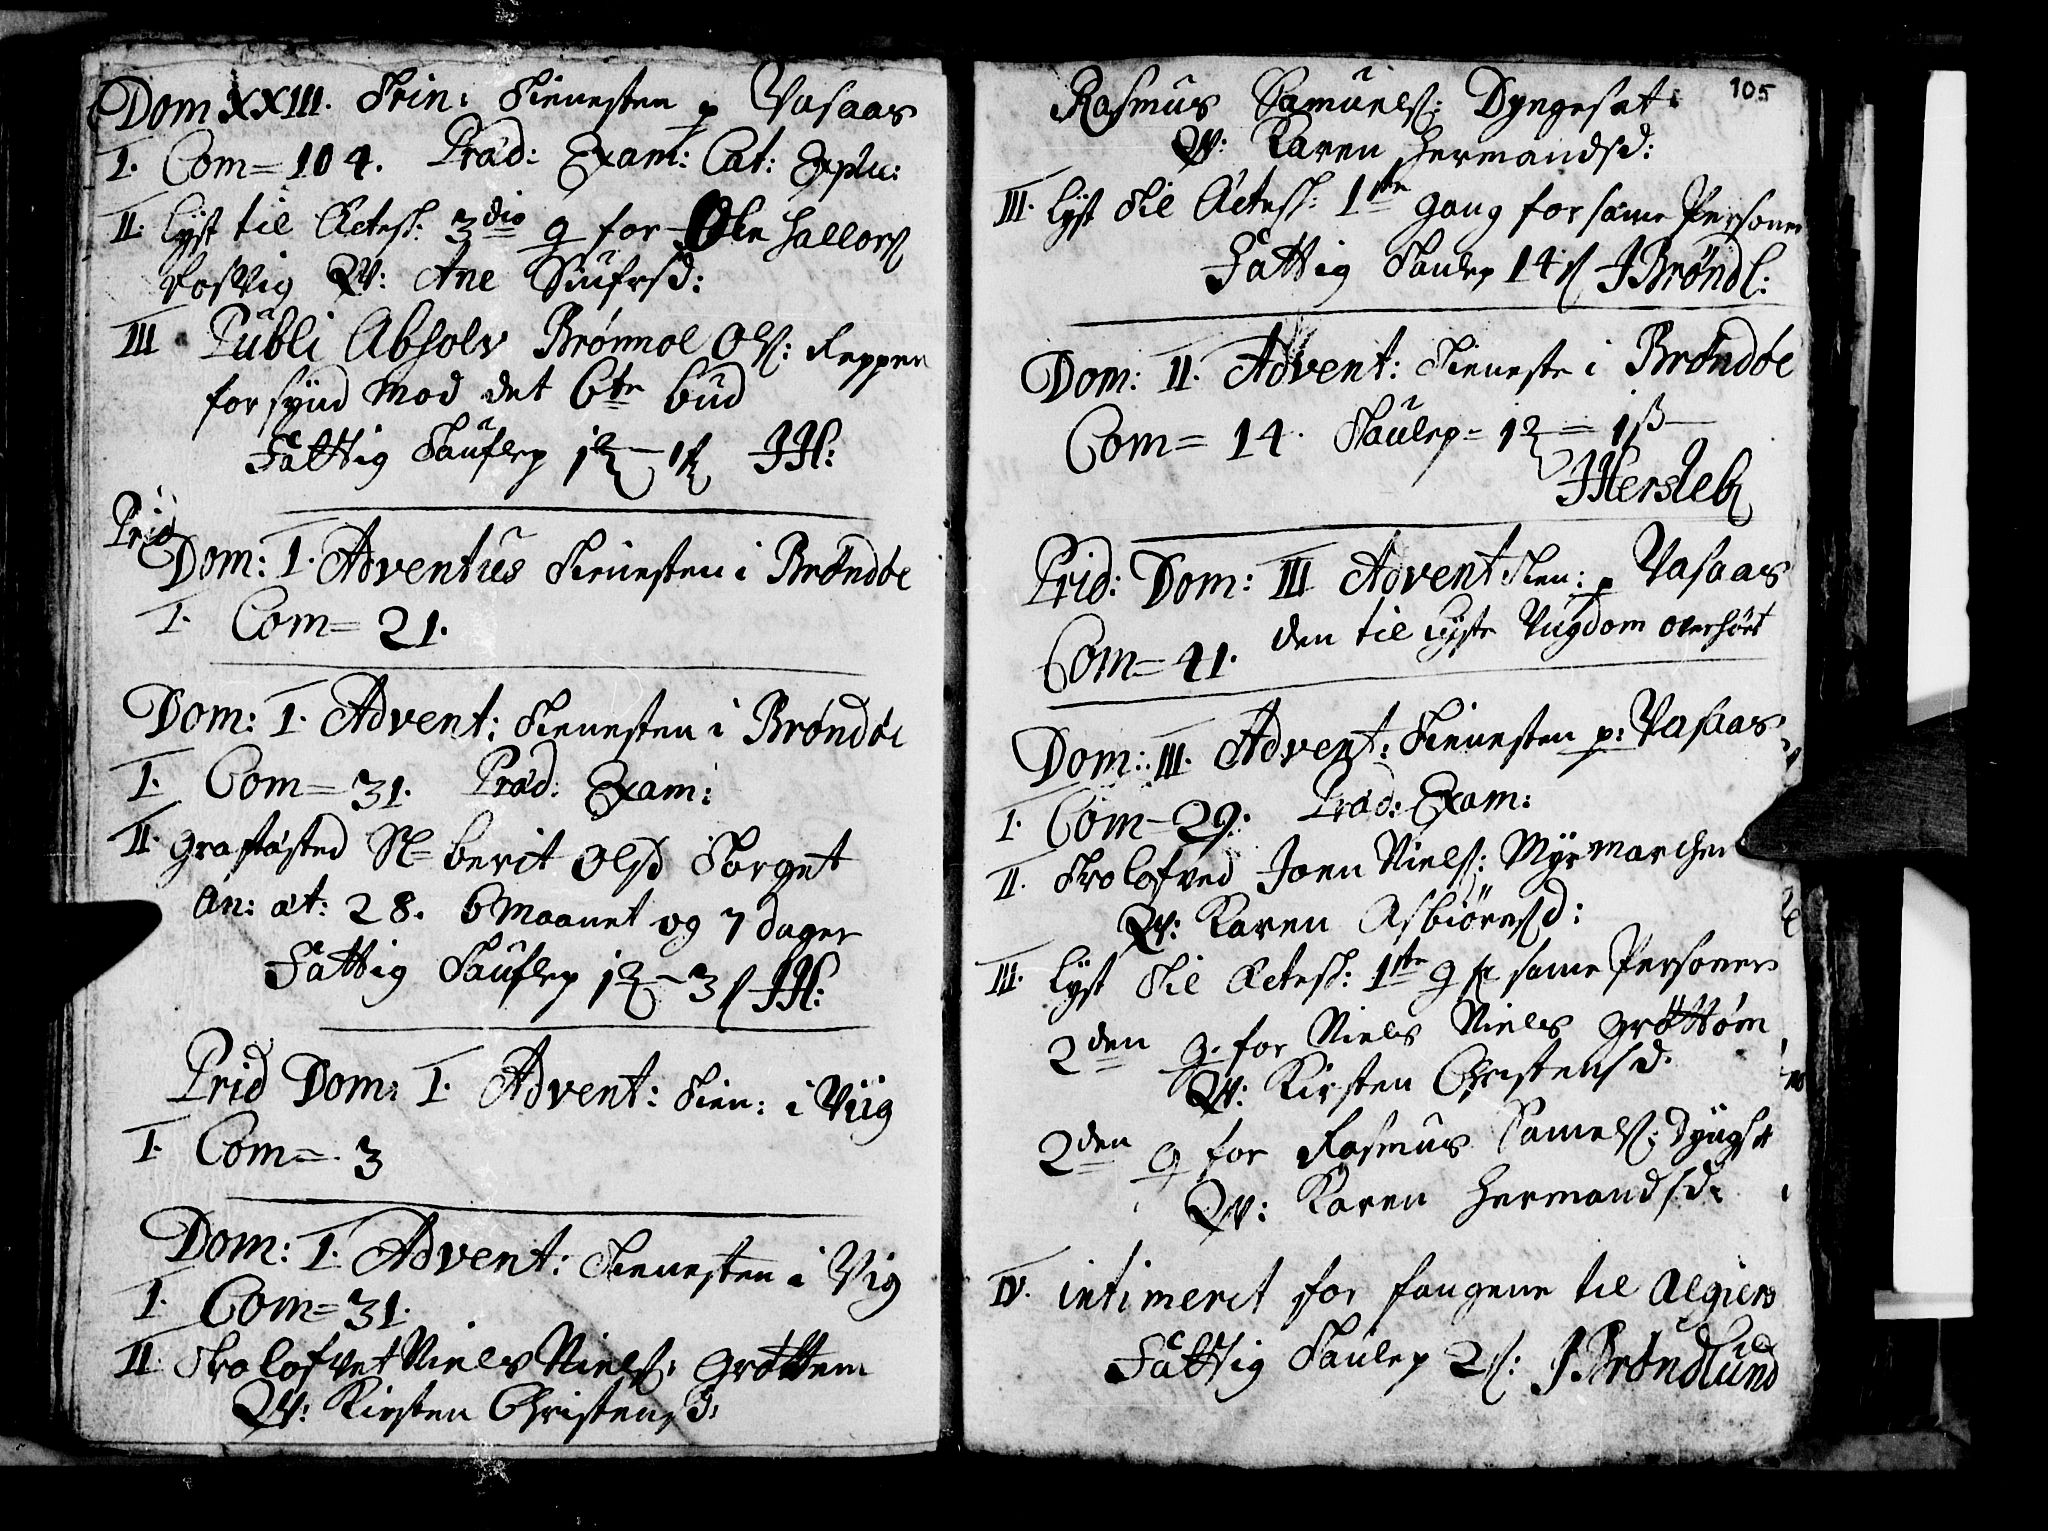 Dom XXIII. Trin: Tienesten p Vasaas
I. Com= 104. Præd: Exam: Cat: Expli:
II. lyst til Ectesk: 3die g for Ole Hallors
Qv: Ane Siufrsd:
III Publi Absolv Brønnol Ols: Reppen
for synd mod det 6te bud
Fattig Taufle JH:
Prid
Dom: I. Adventus Tienesten i Brøndøe
I. Com= 21.
Dom: I. Advent: Tienesten i Brøndøe
I. Com= 31. Præd: Exam:
II. grafæsted Sl= berit Olsd Torget
An: æt: 28. 6 Maanet og 7 dager
Fattig JH:
Prid Dom: I. Advent: Tien: i Viig
I. Com= 3
Dom: I. Advent: Tienesten i Vig
I. Com= 31.
II. Trolofvet Niels Niels: Grøttem
Qv: Kirsten Christensd:
105
Rasmus Samuels: Dyngesæt:
Qv: Karen Hermandsd:
III. lyst til Ectesk: 1ste gang for same Personer
Fattig Taulep 14 s JBrøndl:
Dom: II. Advent: Tieneste i Brøndøe
Com= 14. Taulep= 1
JHersleb
Prid: Dom: III Advent Tien: p Vasaas
Com= 41. den til lyste Vngdom overhørt
Dom: III. Advent: Tienesten p: Vasaas
I. Com= 29. Præd: Exam:
II. Trolofved Joen Niels: Myrmarchen
Qv: Karen Asbiørnsd:
III. lyst til Ectesk: 1ste g for same Personer
2den g. for Niels Niels Grøttøm
Qv: Kirsten Christensd.
2den g for Rasmus Samels: Dyngsæt
Qv: Karen Hermandsd:
IV. intimerit for fangene til Algiers
Fattig Taulep 2 s: JBrøndlund